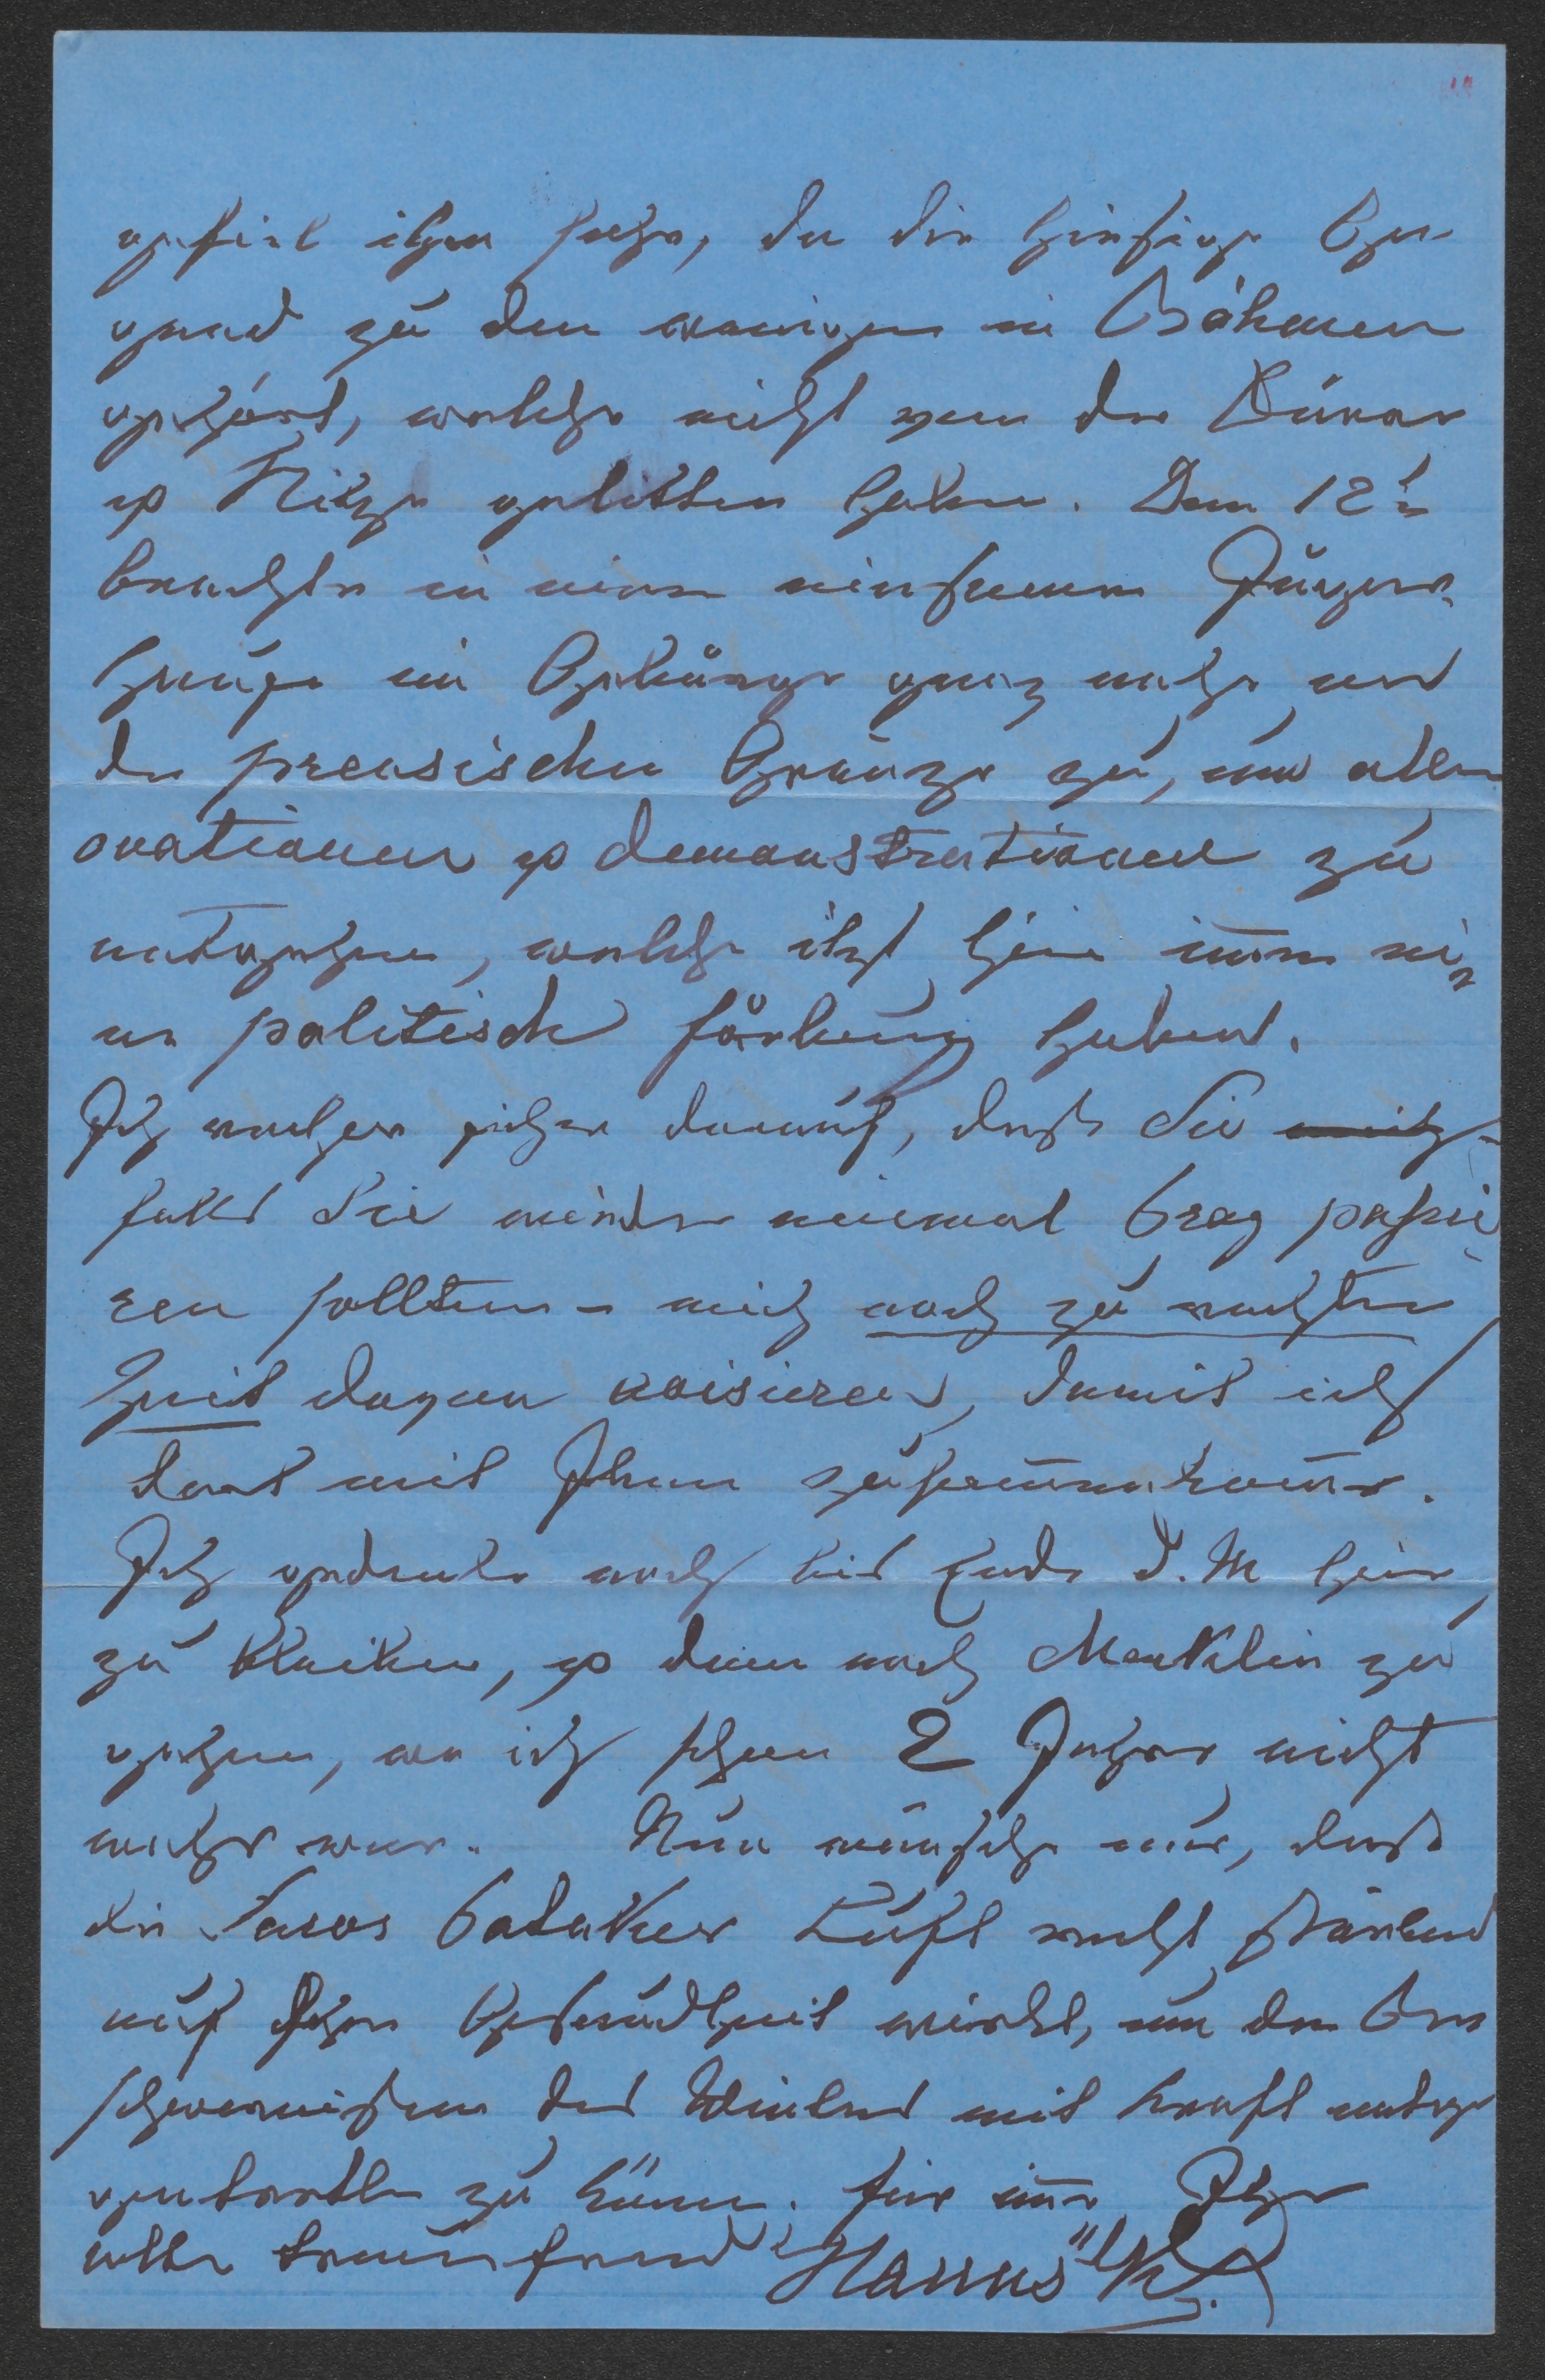 gefiel ihm sehr, da die hiesige Ge-
gend zu den wenigen in Böhmen
gehört, welche nicht von der Dürre
& Hitze gelitten haben. Den 12ten
brachte in einem einsamen Jäger-
hause im Gebürge ganz nahe an
der preusischen Gränze zu, um allen
ovationen & demonstrationen zu
entgehen, welche itzt hier imm ei-
ne politische färbung haben.
Ich rechne sicher darauf, daß Sie
falls Sie wieder einmal Prag passi-
ren sollten – mich noch zu rechter
Zeit davon avisieren, damit ich
dort mit Ihnen zusammenkome.
Ich gedenke noch bis Ende d. M hier
zu bleiben, & dann nach Merklin zu
gehen, wo ich schon 2 Jahre nicht
mehr war. Nun wünsche nur, daß
die Saros Pataker Luft recht stärkend
auf Ihre Gesundheit wirkt, um den Be-
schwernißen des Winters mit Kraft entge
gentretten zu könen. für imr Ihr
alter treuer freund "Hanus" K.